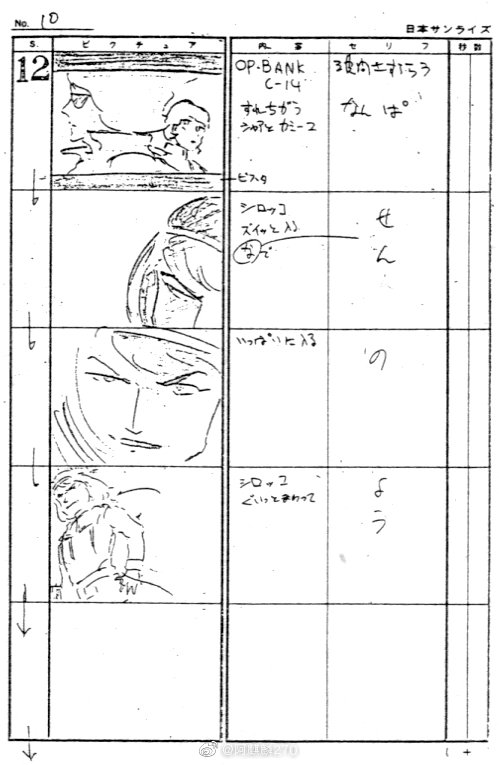 No. 10
日本サンライズ
S. ピクチュア 内容 セリフ 秒数
12
OP-BANK
C-14
すれちがう
シャアと カミーユ
なんぱ
ビスタ
シロッコ
ズイッと入る
なで
せ
ん
いっぱいに入る
の
シロッコ
ぐいっとまわって
よ
う